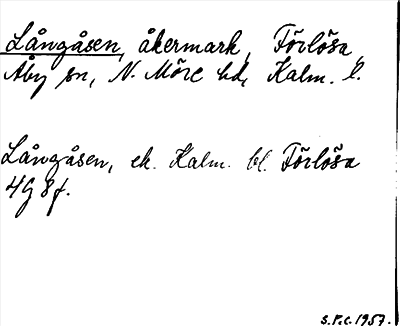 Långåsen, åkermark, Förlösa
Åby sn, N. Möre hd, Kalm. l.
Långåsen, ek. Kalm. bl. Förlösa
4G 8f.
S.F.C. 1957.